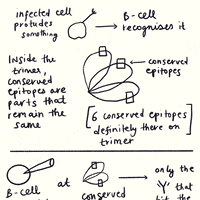 infected cell
protudes
something
B-cell
recognises it
Inside the
trimer,
conserved
epitopes are
parts that
remain the
same
conserved
epitopes
[6 conserved epitopes
definitely there on
trimer
B-cell
at
conserved
only the
'Y' that